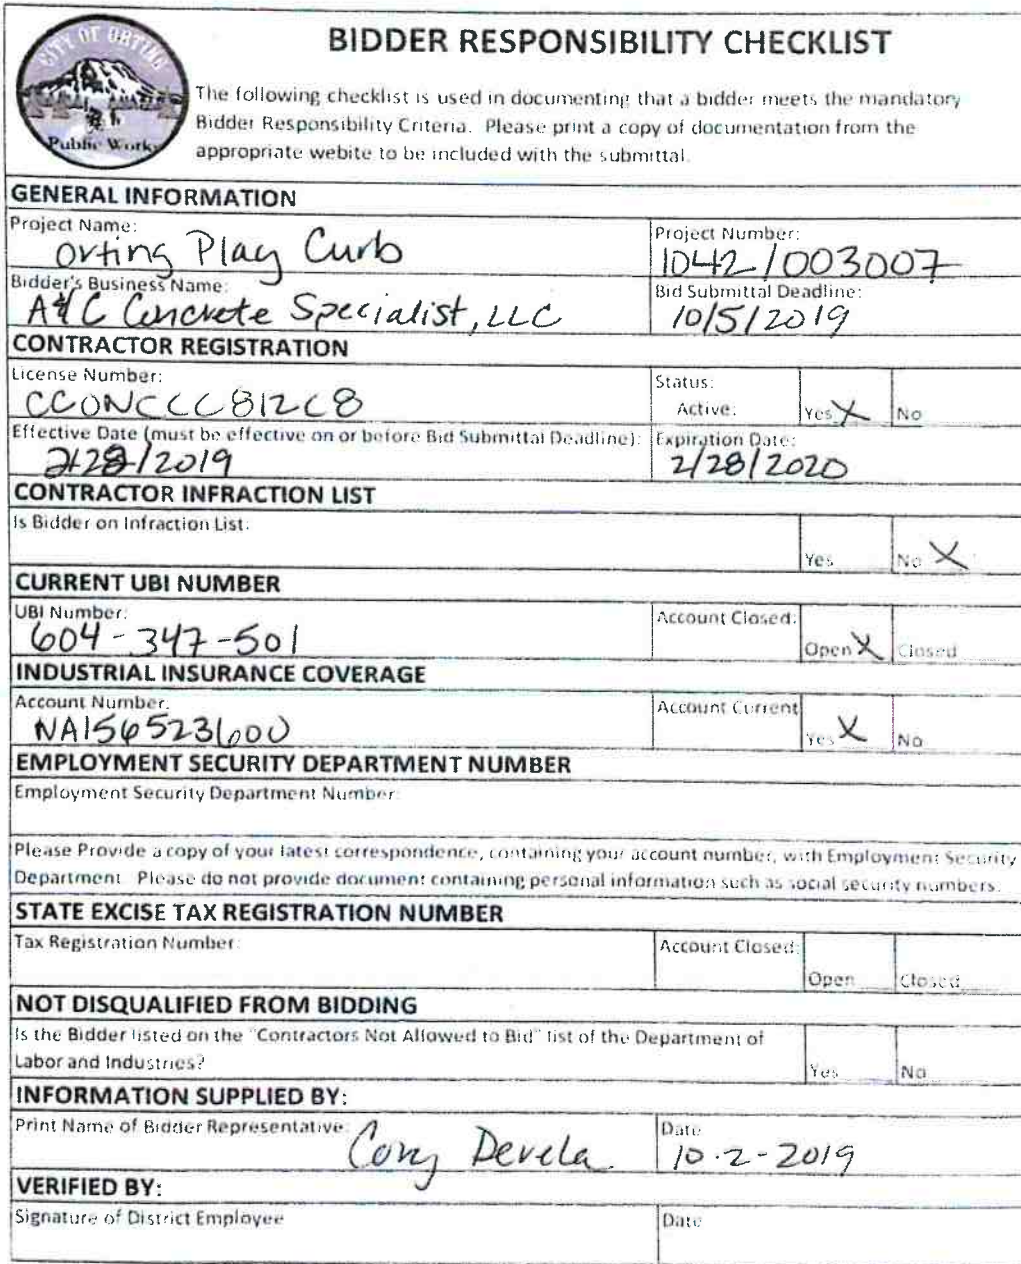 CITY OF ORTING
Public Works
BIDDER RESPONSIBILITY CHECKLIST
The following checklist is used in documenting that a bidder meets the mandatory
Bidder Responsibility Criteria. Please print a copy of documentation from the
appropriate webite to be included with the submittal.
GENERAL INFORMATION
Project Name: Project Number:
Orting Play Curb 1042/003007
Bidder's Business Name: Bid Submittal Deadline:
A&C Concrete Specialist, LLC 10/5/2019
CONTRACTOR REGISTRATION
License Number: Status:
CCONCCC812C8 Active: Yes X No
Effective Date (must be effective on or before Bid Submittal Deadline): Expiration Date:
2/28/2019 2/28/2020
CONTRACTOR INFRACTION LIST
Is Bidder on Infraction List:
Yes No X
CURRENT UBI NUMBER
UBI Number: Account Closed:
604-347-501 Open X Closed
INDUSTRIAL INSURANCE COVERAGE
Account Number: Account Current
Yes X No
EMPLOYMENT SECURITY DEPARTMENT NUMBER
Employment Security Department Number:
Please Provide a copy of your latest correspondence, containing your account number, with Employment Security
Department. Please do not provide document containing personal information such as social security numbers.
STATE EXCISE TAX REGISTRATION NUMBER
Tax Registration Number: Account Closed:
Open Closed
NOT DISQUALIFIED FROM BIDDING
Is the Bidder listed on the "Contractors Not Allowed to Bid" list of the Department of
Labor and Industries? Yes No
INFORMATION SUPPLIED BY:
Print Name of Bidder Representative: Cory Devela Date
10-2-2019
VERIFIED BY:
Signature of District Employee Date